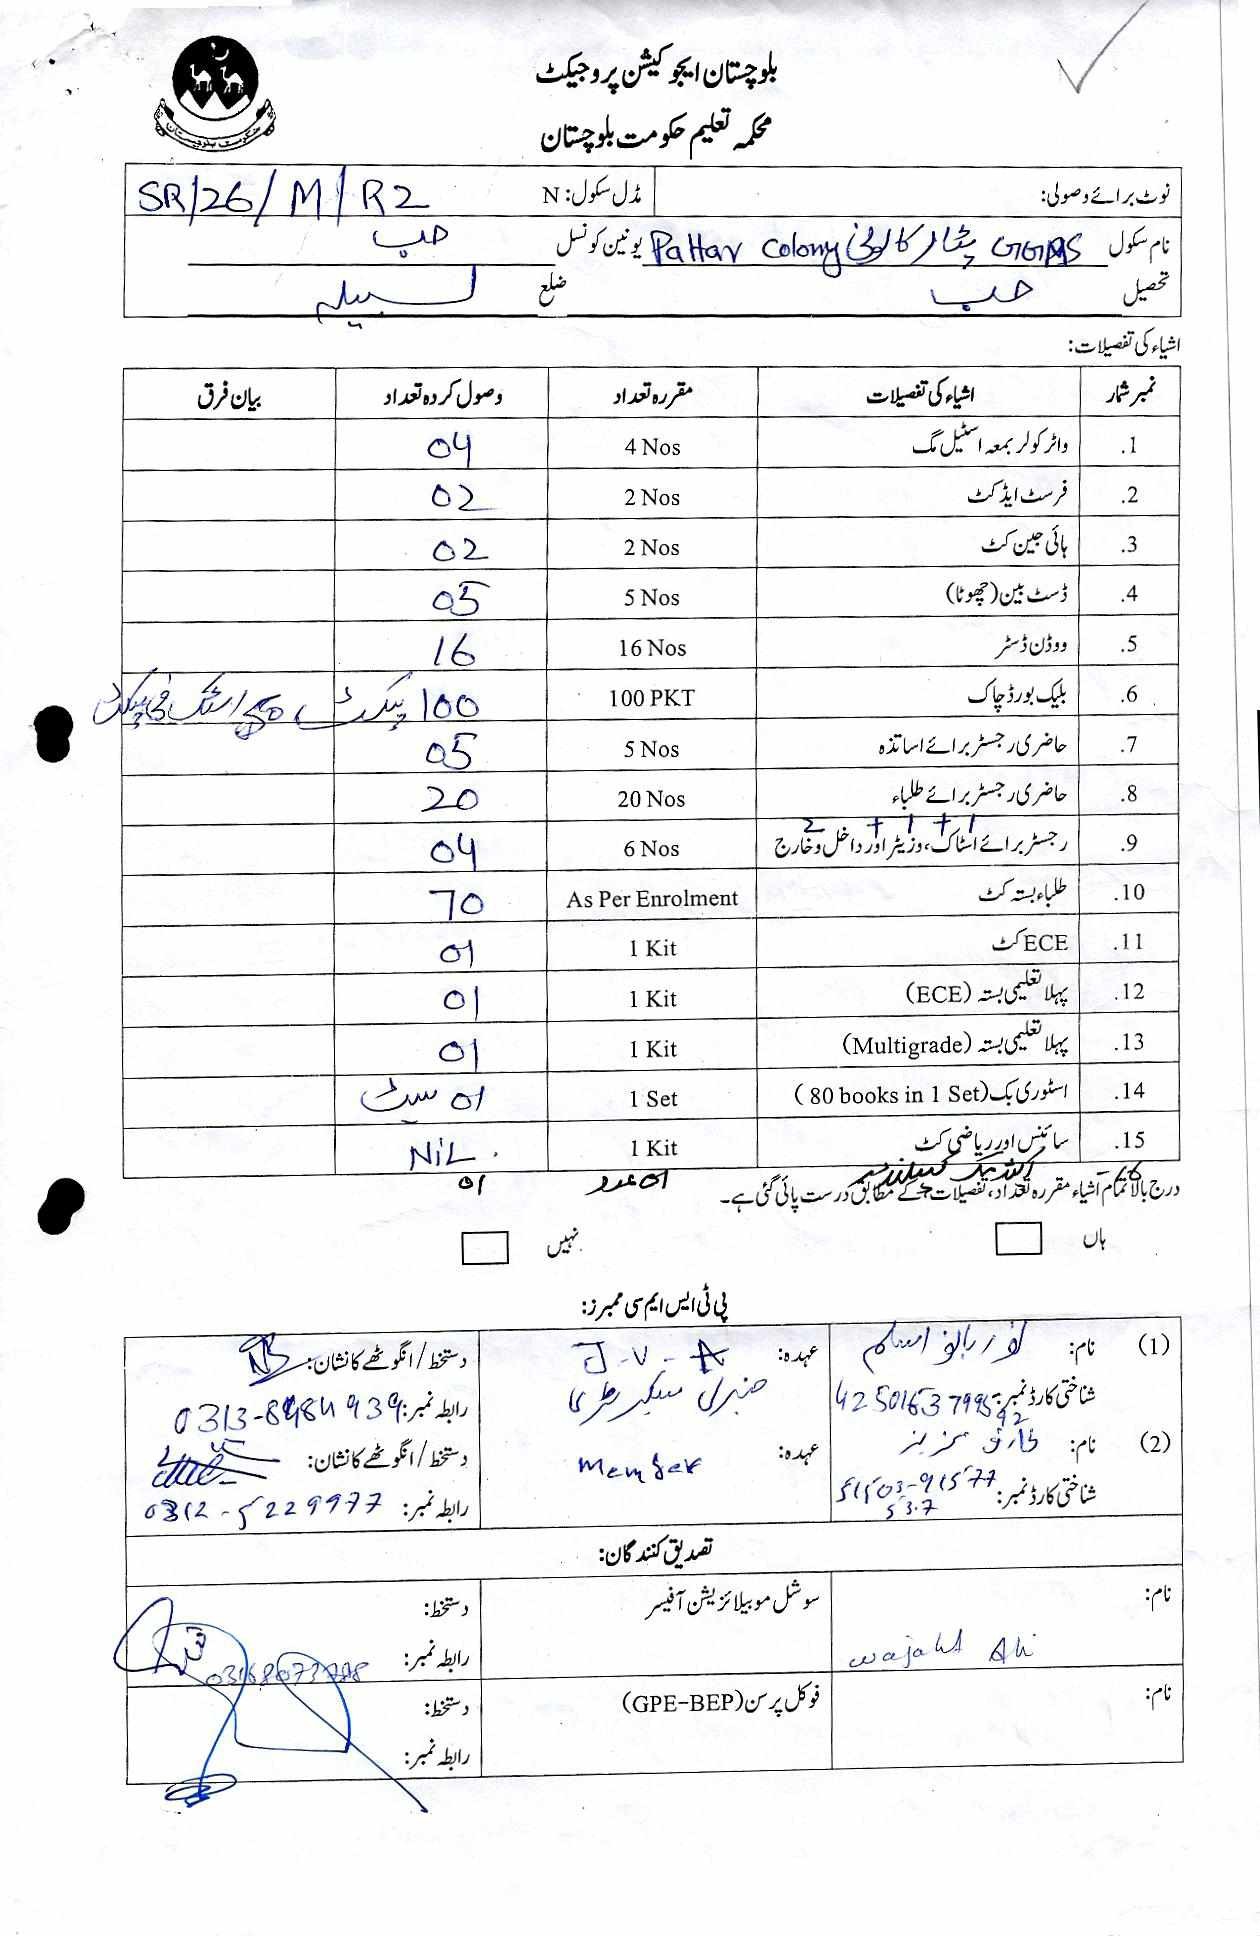 حکومت بلوچستان
بلوچستان ایجوکیشن پروجیکٹ
محکمہ تعلیم حکومت بلوچستان
نوٹ برائے وصولی: مڈل سکول: N SR/26/M/R2
نام سکول GGMS پٹار کالونی Pattar Colony یونین کونسل حب
تحصیل حب ضلع لسبیلہ
اشیاء کی تفصیلات:
نمبر شمار اشیاء کی تفصیلات مقررہ تعداد وصول کردہ تعداد بیان فرق
1. واٹر کولر بمعہ اسٹیل مگ 4 Nos 04
2. فرسٹ ایڈ کٹ 2 Nos 02
3. ہائی جین کٹ 2 Nos 02
4. ڈسٹ بین (چھوٹا) 5 Nos 05
5. ووڈن ڈسٹر 16 Nos 16
6. بلیک بورڈ چاک 100 PKT 100 پیکٹ، 50 اسٹک فی پیکٹ
7. حاضری رجسٹر برائے اساتذہ 5 Nos 05
8. حاضری رجسٹر برائے طلباء 20 Nos 20
1 + 1 + 2
9. رجسٹر برائے اسٹاک، وزیٹر اور داخل و خارج 6 Nos 04
10. طلباء بستہ کٹ As Per Enrolment 70
11. ECE کٹ 1 Kit 01
12. پہلا تعلیمی بستہ (ECE) 1 Kit 01
13. پہلا تعلیمی بستہ (Multigrade) 1 Kit 01
14. اسٹوری بک (80 books in 1 Set) 1 Set 01 سیٹ
15. سائنس اور ریاضی کٹ 1 Kit NIL.
16 01 عدد 01
درج بالا تمام اشیاء مقررہ تعداد، تفصیلات کے مطابق درست پائی گئی ہے۔
ہاں نہیں
پی ٹی ایس ایم سی ممبرز:
(1) نام: نور بانو اسلم عہدہ: J-V-A دستخط/انگوٹھے کا نشان:
جنرل سیکریٹری
شناختی کارڈ نمبر: رابطہ نمبر: 0313-8484939
(2) نام: طارق عزیز عہدہ: Member دستخط/انگوٹھے کا نشان:
شناختی کارڈ نمبر: 51503-91577 رابطہ نمبر: 0312-5229977
53.7
تصدیق کنندگان:
نام: سوشل موبیلائزیشن آفیسر دستخط:
Wajahat Ali رابطہ نمبر:
نام: فوکل پرسن (GPE-BEP) دستخط:
رابطہ نمبر: